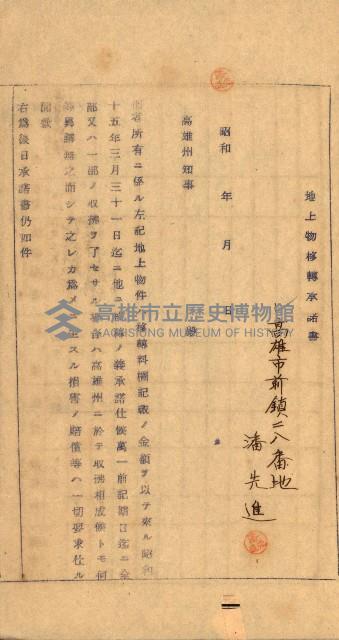 地上物移轉承諾書
高雄市前鎮二八番地
潘先進
昭和 年 月 日
高雄州知事 殿
者所有ニ係ル左記地上物件ノ移轉料欄記載ノ金額ヲ以テ來ル昭和
十五年三月三十一日迄ニ他ニ移轉ノ義承諾仕候萬一前記期日迄ニ全
部又ハ一部ノ收拂ヲ了セサル場合ハ高雄州ニ於テ收拂相成候トモ何
等異議無之而シテ之レカ爲メニ生スル損害ノ賠償等ハ一切要求仕ル
間敷
右爲後日承諾書仍如件
高雄市立歷史博物館
KAOHSIUNG MUSEUM OF HISTORY